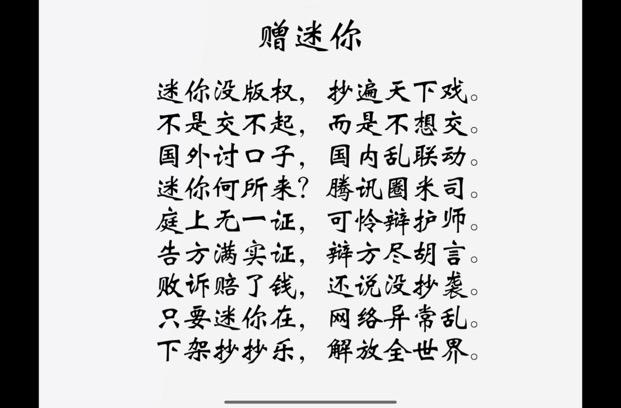 赠迷你
迷你没版权，抄遍天下戏。
不是交不起，而是不想交。
国外讨口子，国内乱联动。
迷你何所来？腾讯圈米司。
庭上无一证，可怜辩护师。
告方满实证，辩方尽胡言。
败诉赔了钱，还说没抄袭。
只要迷你在，网络异常乱。
下架抄抄乐，解放全世界。